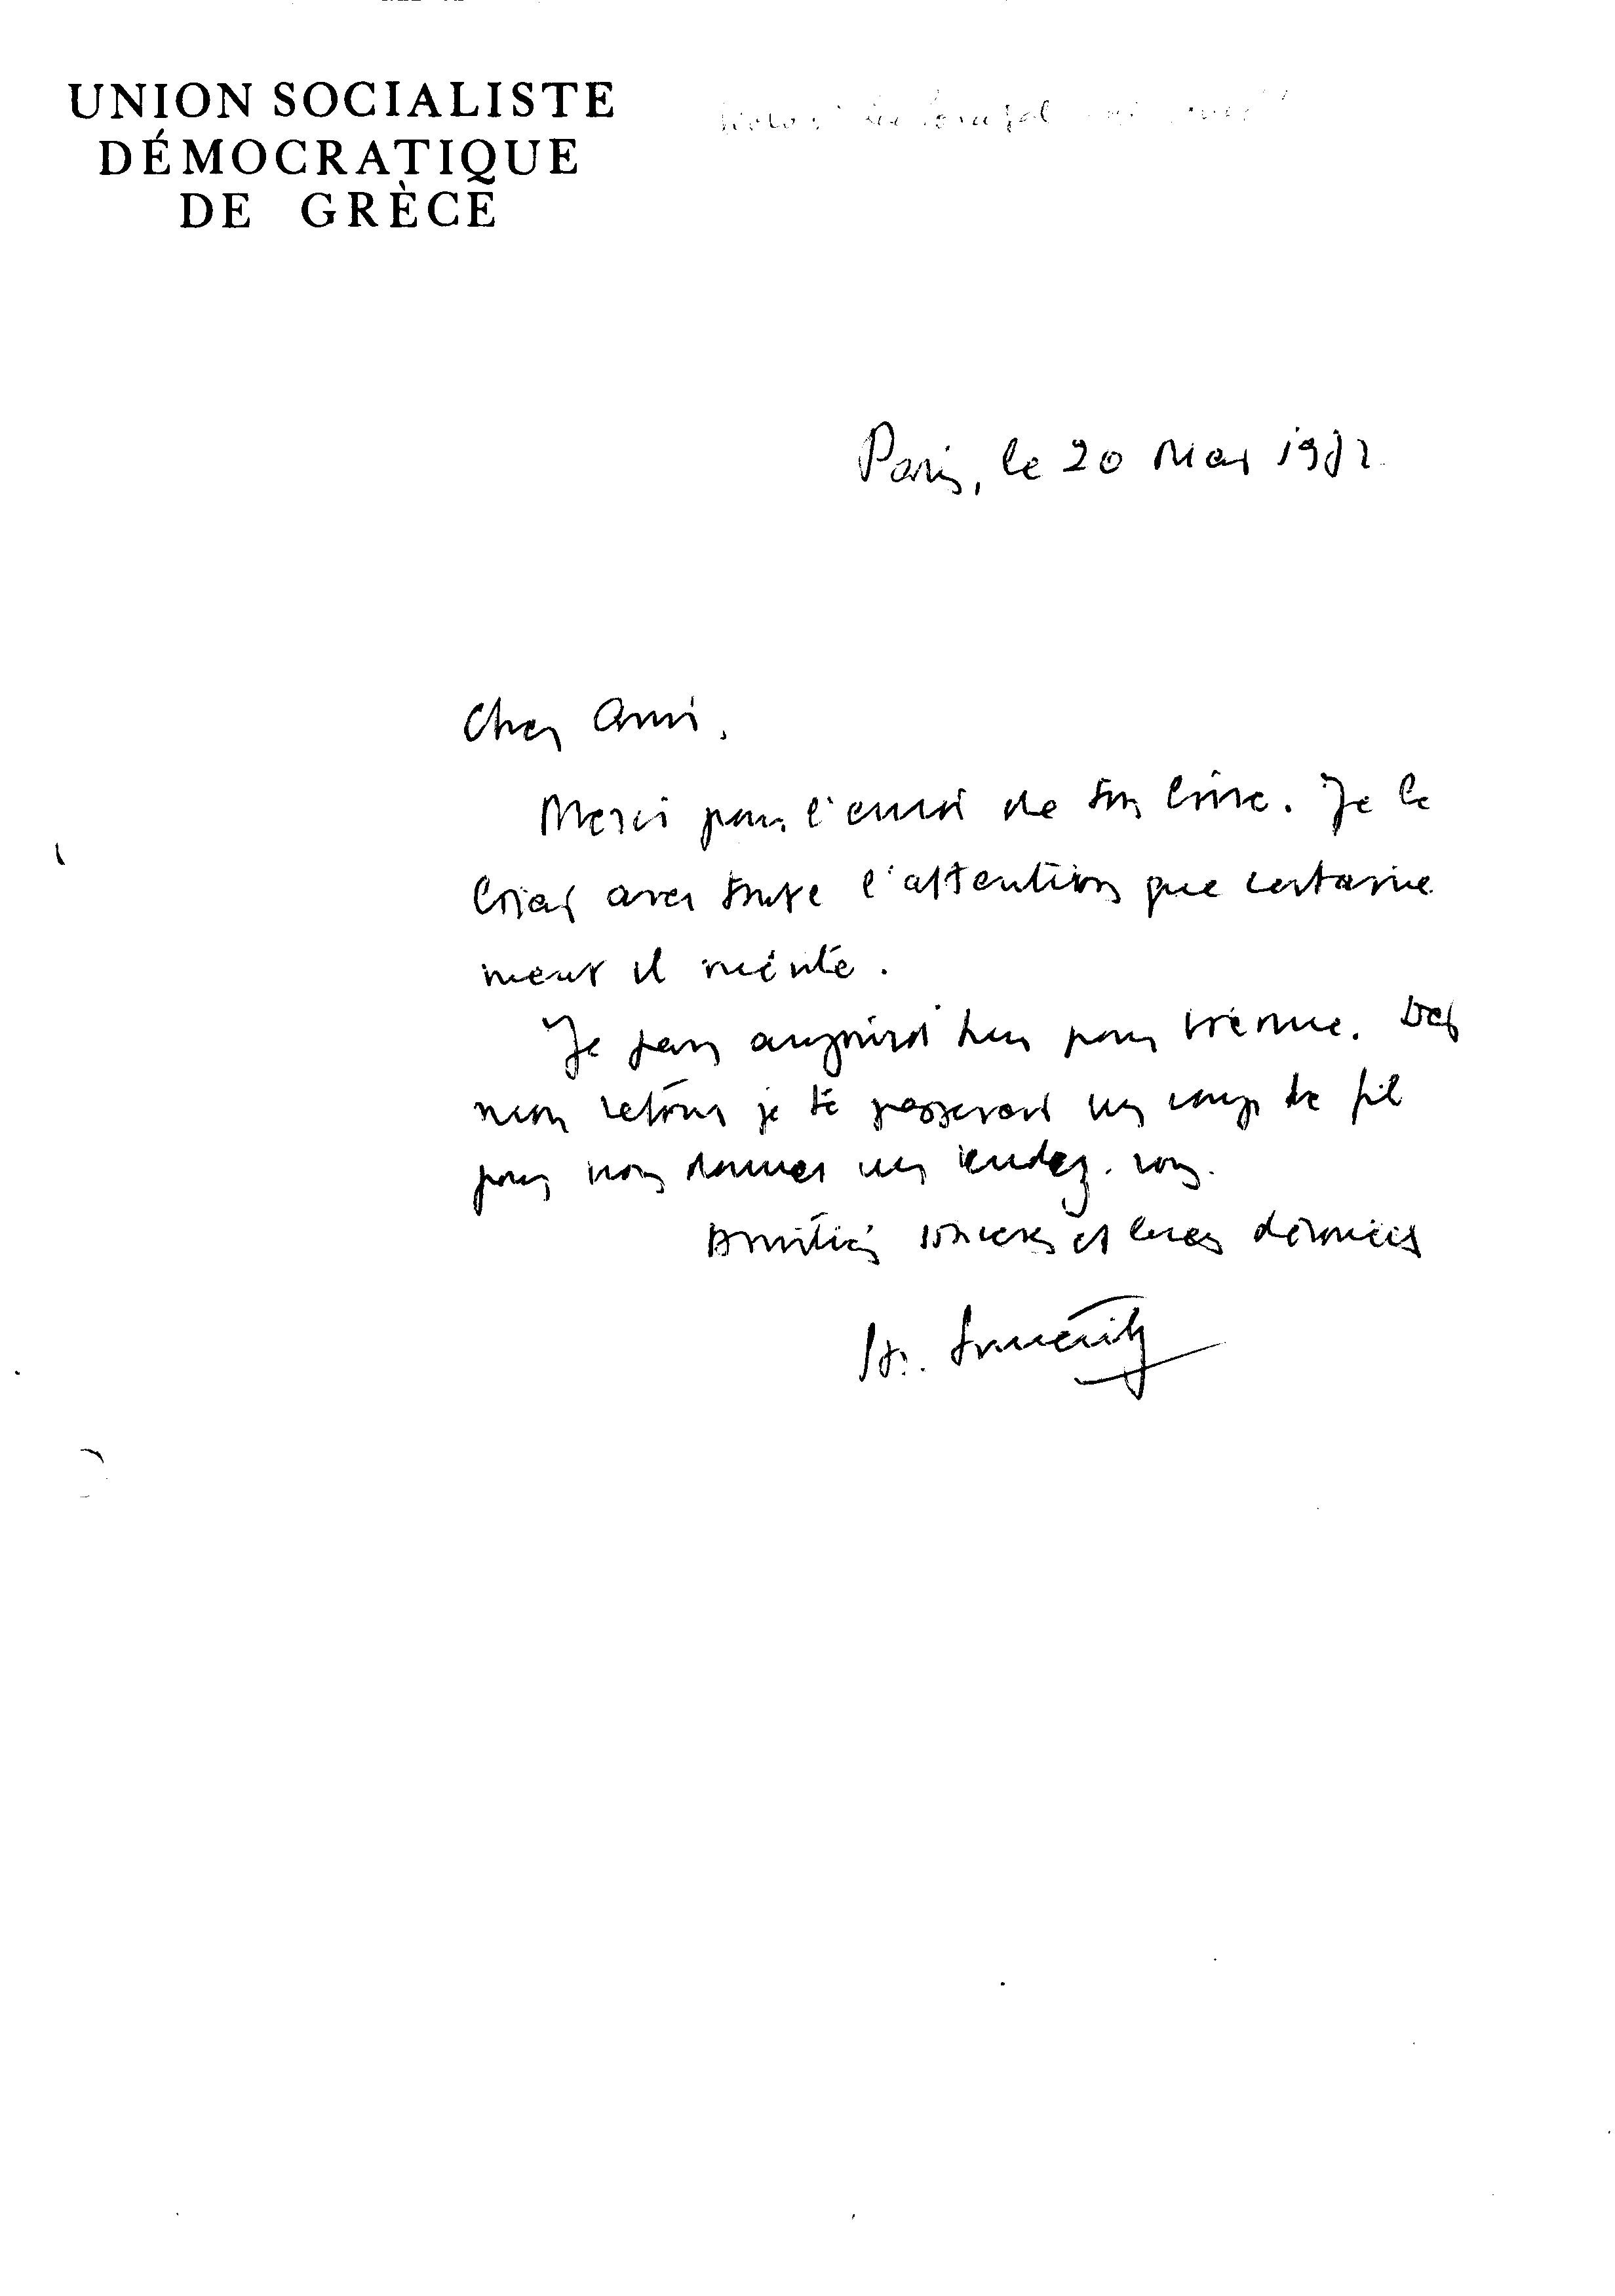 UNION SOCIALISTE
DÉMOCRATIQUE
DE GRÈCE
Paris, le 20 Mai 1982
Cher Ami,
Merci pour l'envoi de ton livre. Je le
lirai avec toute l'attention que certaine
ment il mérite.
Je pars aujourd'hui pour Vienne. Dès
mon retour je te passerai un coup de fil
pour nous donner un rendez-vous.
Amitiés sincères et